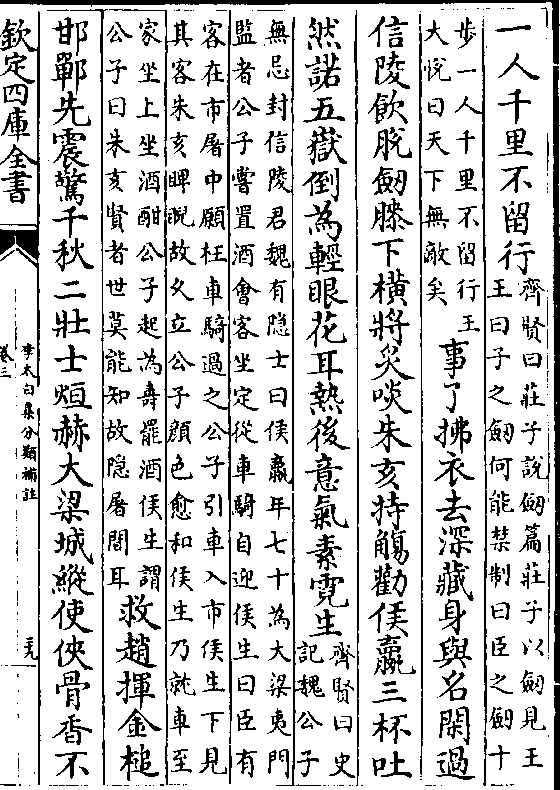 一人千里不留行
齊賢曰莊子說劒篇莊子以劒見王
王曰子之劒何能禁制曰臣之劒十
步一人千里不留行王
大悅曰天下無敵矣
事了拂衣去深藏身與名閑過
信陵飲脫劒膝下橫將炙啖朱亥持觴勸侯嬴三杯吐
然諾五嶽倒為輕眼花耳熱後意氣素霓生
齊賢曰史
記魏公子
無忌封信陵君魏有隐士曰侯嬴年七十為大梁夷門
監者公子嘗置酒會客坐定從車騎自迎侯生曰臣有
客在市屠中願枉車騎過之公子引車入市侯生下見
其客朱亥睥睨故久立公子顔色愈和侯生乃就車至
家坐上坐酒酣公子起為壽罷酒侯生謂
公子曰朱亥賢者世莫能知故隐屠間耳
救趙揮金槌
邯鄲先震驚千秋二壯士烜赫大梁城縱使俠骨香不
欽定四庫全書
李太白集分類補註
卷三